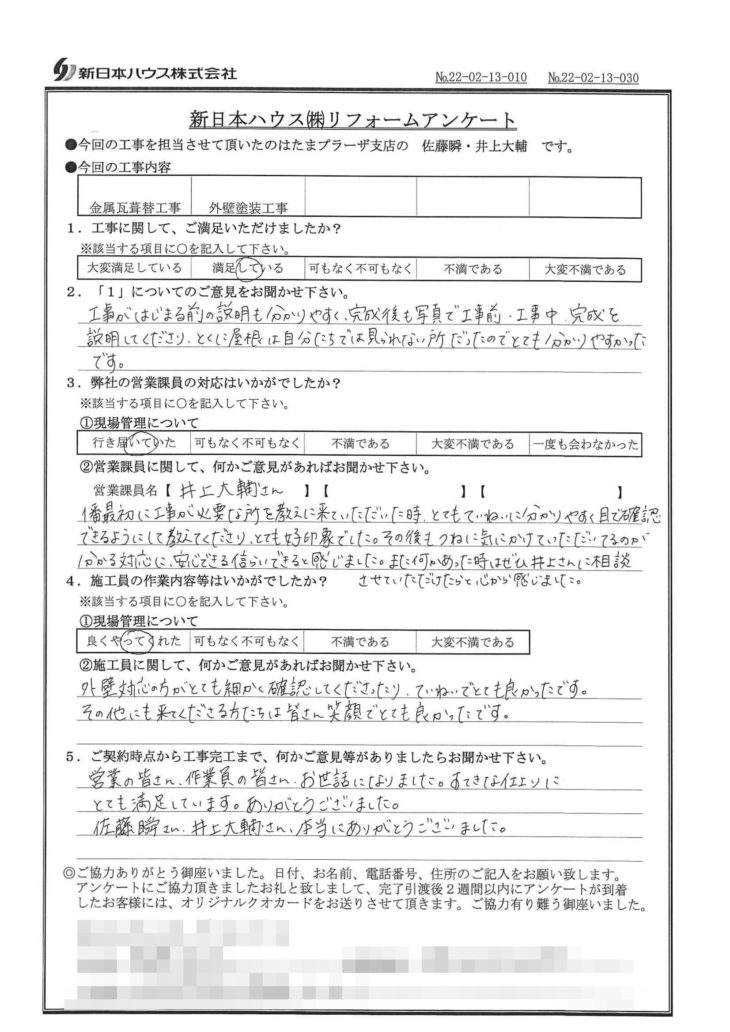 新日本ハウス株式会社
№22-02-13-010 №22-02-13-030
新日本ハウス㈱リフォームアンケート
●今回の工事を担当させて頂いたのはたまプラーザ支店の 佐藤瞬・井上大輔 です。
●今回の工事内容
金属瓦葺替工事 外壁塗装工事
1．工事に関して、ご満足いただけましたか？
※該当する項目に○を記入して下さい。
大変満足している 満足している 可もなく不可もなく 不満である 大変不満である
2．「1」についてのご意見をお聞かせ下さい。
工事がはじまる前の説明も分かりやすく、完成後も写真で工事前・工事中・完成を
説明してくださり、とくに屋根は自分たちでは見られない所だったのでとても分かりやすかった
です。
3．弊社の営業課員の対応はいかがでしたか？
※該当する項目に○を記入して下さい。
①現場管理について
行き届いていた 可もなく不可もなく 不満である 大変不満である 一度も会わなかった
②営業課員に関して、何かご意見があればお聞かせ下さい。
営業課員名【 井上大輔さん 】【 】【 】
1番最初に工事が必要な所を教えに来ていただいた時、とてもていねいに分かりやすく目で確認
できるようにして教えてくださり、とても好印象でした。その後もつねに気にかけていただいてるのが
分かる対応に、安心できる信らいできると感じました。また何かあった時はぜひ井上さんに相談
させていただけたらと心から感じました。
4．施工員の作業内容等はいかがでしたか？
※該当する項目に○を記入して下さい。
①現場管理について
良くやってくれた 可もなく不可もなく 不満である 大変不満である
②施工員に関して、何かご意見があればお聞かせ下さい。
外壁対応の方がとても細かく確認してくださったり、ていねいでとても良かったです。
その他にも来てくださる方たちは皆さん笑顔でとても良かったです。
5．ご契約時点から工事完工まで、何かご意見等がありましたらお聞かせ下さい。
営業の皆さん、作業員の皆さん、お世話になりました。すてきな仕上りに
とても満足しています。ありがとうございました。
佐藤瞬さん、井上大輔さん、本当にありがとうございました。
◎ご協力ありがとう御座いました。日付、お名前、電話番号、住所のご記入をお願い致します。
アンケートにご協力頂きましたお礼と致しまして、完了引渡後2週間以内にアンケートが到着
したお客様には、オリジナルクオカードをお送りさせて頂きます。ご協力有り難う御座いました。